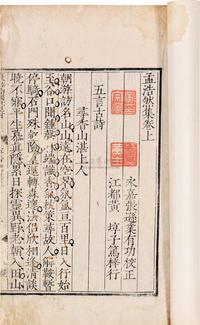 孟浩然集卷上
永嘉張遜業有功校正
江都黃埻子篤梓行
五言古詩
尋香山湛上人
朝遊訪名山山遠在空翠氛氳亘百里日入行始
至谷口聞鐘聲林端識香氣杖策尋故人解鞍暫
停騎石門殊豁險篁逕轉森邃法侶欣相逢清談
曉不寐平生慕真隱累日探靈異野老朝入田山